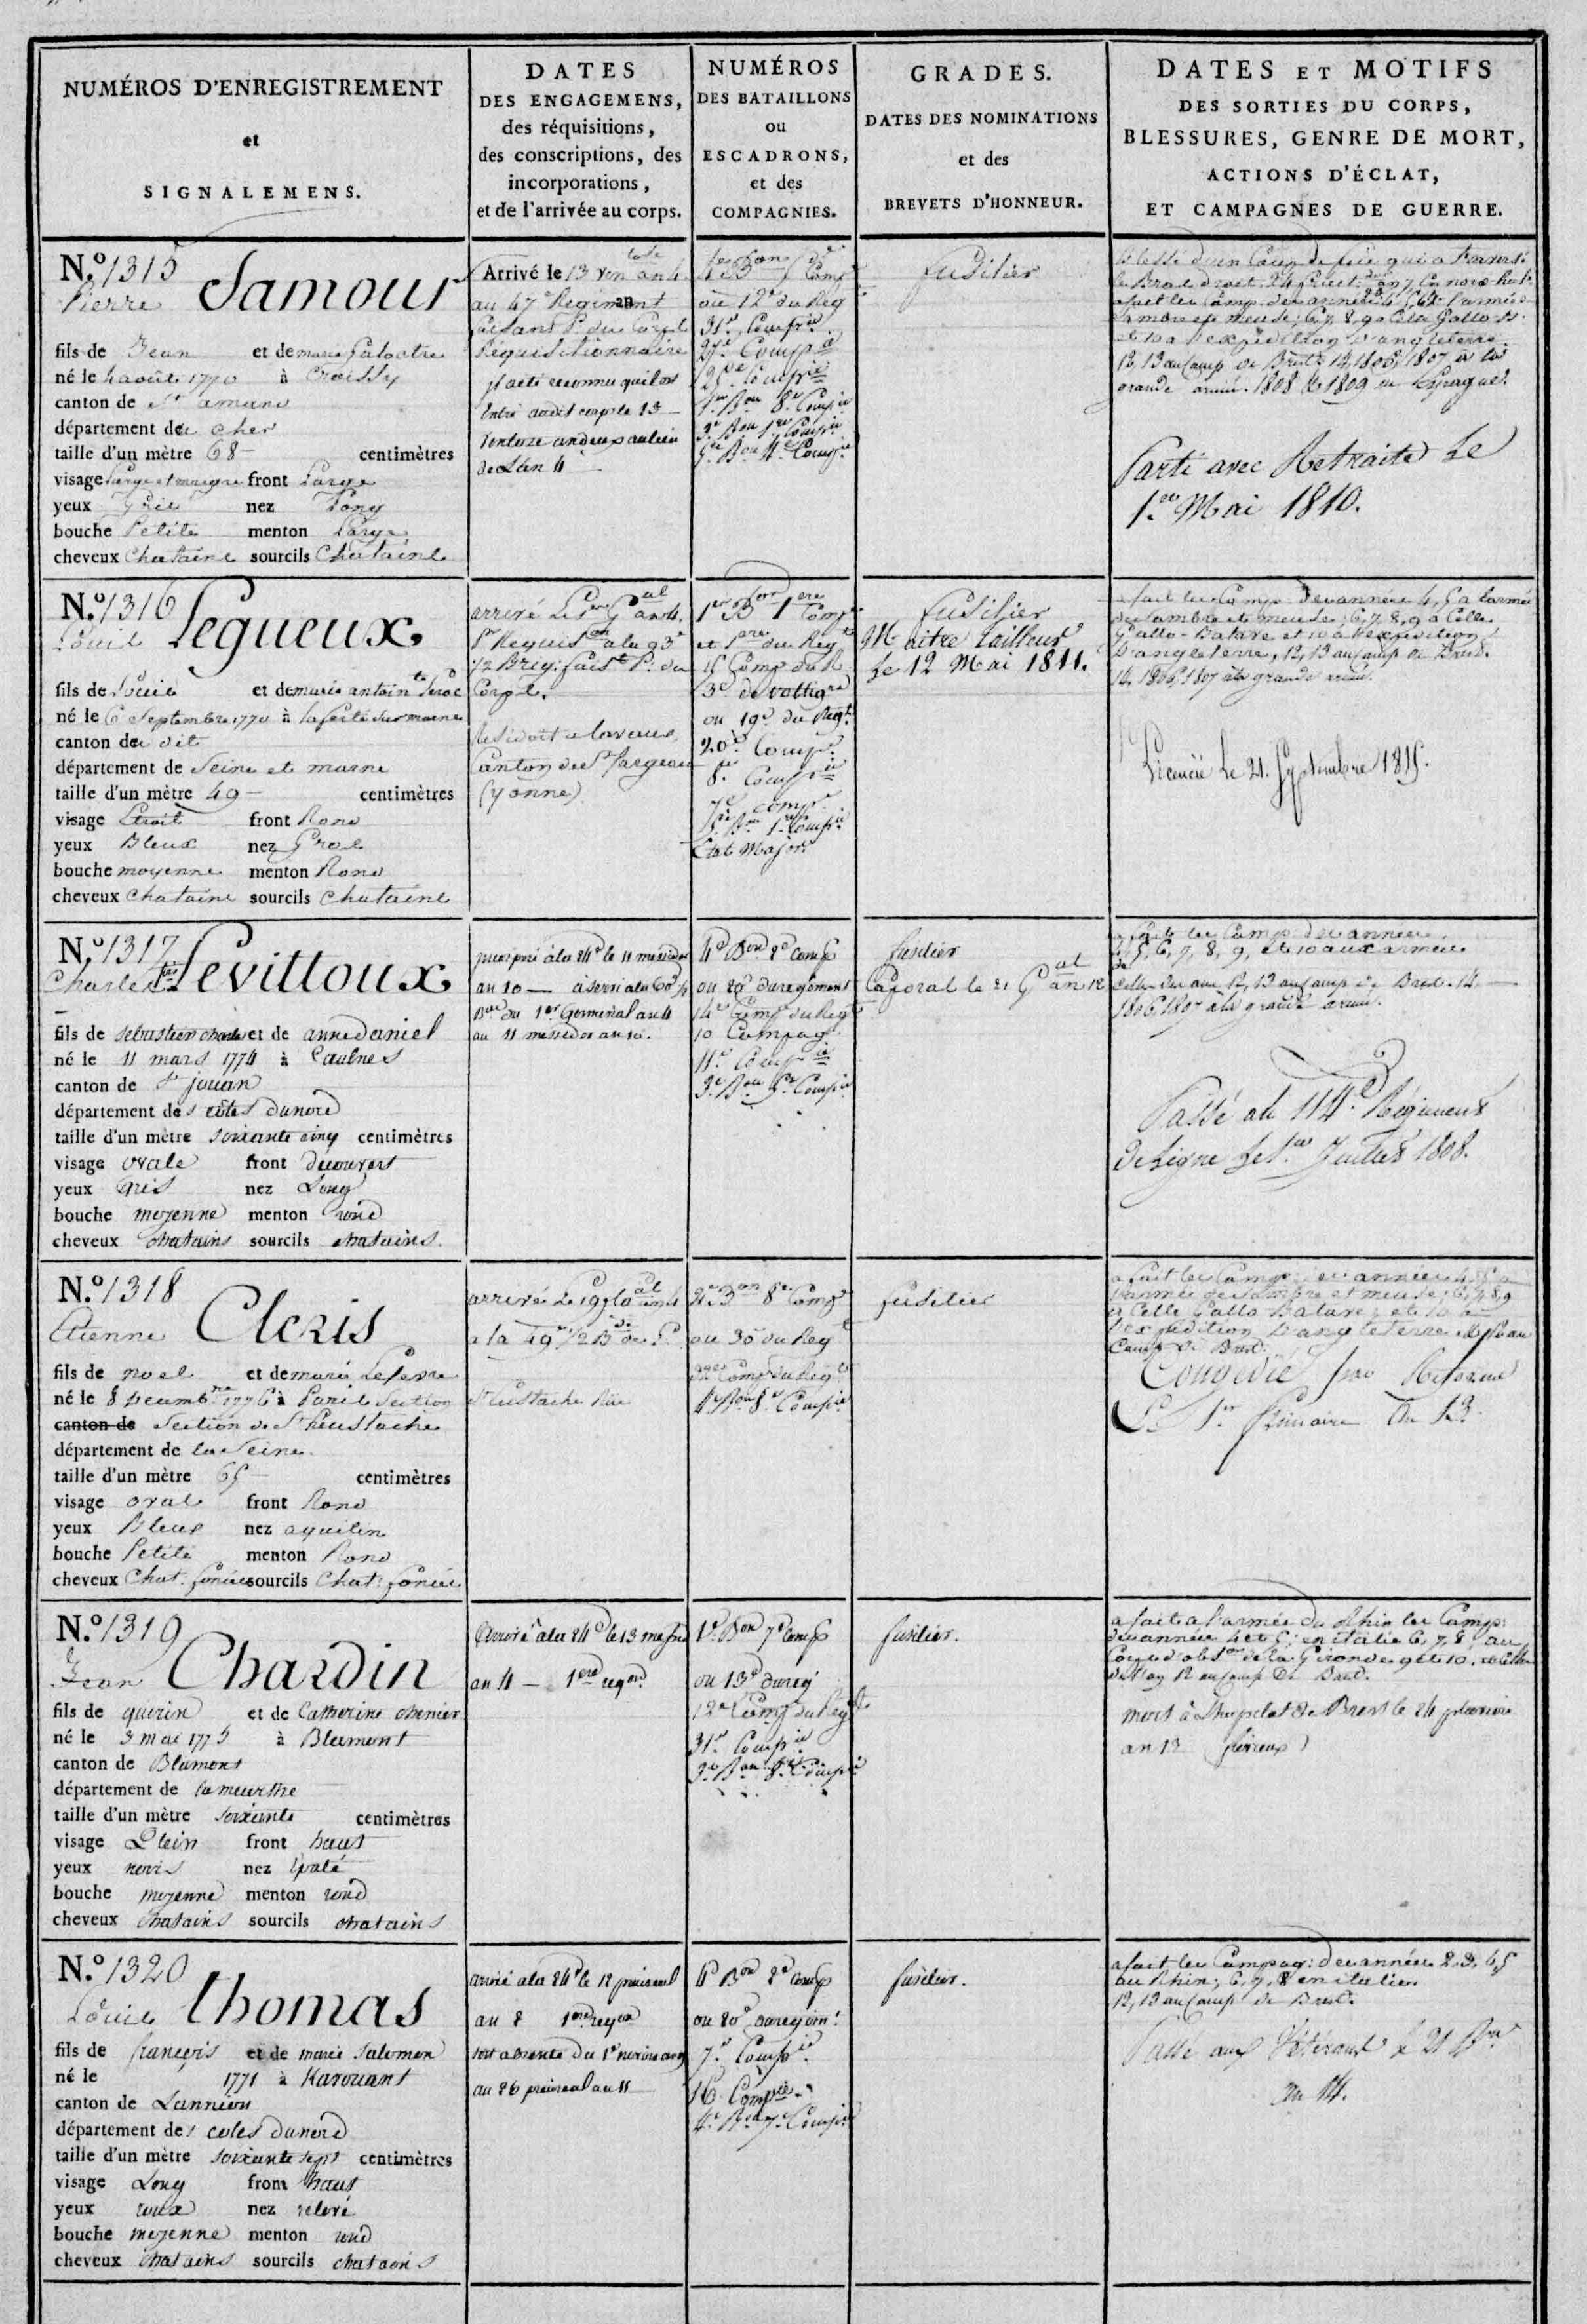 NUMÉROS D'ENREGISTREMENT
et
SIGNALEMENS.
DATES
DES ENGAGEMENS,
des réquisitions,
des conscriptions, des
incorporations,
et de l'arrivée au corps.
NUMÉROS
DES BATAILLONS
ou
ESCADRONS,
et des
COMPAGNIES.
GRADES.
DATES DES NOMINATIONS
et des
BREVETS D'HONNEUR.
DATES ET MOTIFS
DES SORTIES DU CORPS,
BLESSURES, GENRE DE MORT,
ACTIONS D'ÉCLAT,
ET CAMPAGNES DE GUERRE.
N.º 1315
Pierre Samour
fils de Jean et de marie
né le 4 août 1770 à Croissy
canton de St amand
département du cher
taille d'un mètre 68 centimètres
visage Large et maigre front Large
yeux Gris nez Long
bouche Petite menton Large
cheveux Chataine sourcils Chataine
Arrivé le 13 ven an 4
au 47e Regiment
faisant P. du Corps
Réquisitionnaire
il a été reconnu qu'il est
Entré audit corps le 13
Ventose an deux au lieu
de L'an 4
4e Bon Comp
ou 12e du Reg
31e Compie
27e Compie
25e Compie
1er Bon 8e Compie
3e Bon 1re Compie
5e Bon 4e Compie
fusilier
blessé d'un Coup de feu qui a Traversé
le Bras droit
a fait les Camp. des années 4, 5, à l'armée
Sambre et meuse; 6, 7, 8, 9 a Celle Gallo B.
et 10 a l'expedition d'angleterre.
12, 13 au Camp de Brest. 14, 1806, 1807 à la
grande armée. 1808 et 1809 en Espagne.
Parti avec Retraite Le
1er Mai 1810.
N.º 1316
Louis Legueux
fils de Louis et de marie antointe
né le 6 Septembre 1770 à la ferté sur marne
canton du dit
département de Seine et marne
taille d'un mètre 49 centimètres
visage Etroit front Rond
yeux Bleux nez Gros
bouche moyenne menton Rond
cheveux Chataine sourcils Chataine
arrivé Le 1er Gal an 4
pr Requison a la 93e
1/2 Brig: fait P. du
Corps.
Residoit a laveau
Canton de St fargeau
(yonne)
1er Bon 1ere Comp
et 1ere du Reg
15 Comp du R.
3e de voltigrs
ou 19e du Regt
20e Comp.
8e Compie
7e comp
1re Compie
Etat Major
fusilier
Maitre tailleur
Le 12 Mai 1811.
a fait les Camp des années 4, 5 a l'armée
de Sambre et meuse; 6, 7, 8, 9 a Celle
Gallo-Batave et 10 a l'expedition
d'angleterre, 12, 13 au Camp de Brest.
14, 1806, 1807 à la grande armée.
Licencié Le 21. Septembre 1815.
N.º 1317
Charles Levittoux
fils de sebastien charles et de anne daniel
né le 11 mars 1774 à Caulnes
canton de St jouan
département des côtes dunord
taille d'un mètre soixante cinq centimètres
visage ovale front decouvert
yeux gris nez Long
bouche moyenne menton rond
cheveux chatains sourcils chatains
à la 24e le 11 messidor
an 10 — à servi a la 60e 1/2
Bde du 1er Germinal an 4
au 11 messidor an 10.
4e Bon 2e comp
ou 20e du regiment
14e Comp du Regt
10 Compag
11e Compie
3e Bon 5e Compie
fusilier
Caporal le 21 Gal an 12
a fait les Camp des années
4, 5, 6, 7, 8, 9, et 10 aux armées
celles des ans 12, 13 au Camp de Brest. 14.
1806, 1807 à la grande armée.
Passé au 114e Régiment
de Ligne Le 1er Juillet 1808.
N.º 1318
Etienne Cleris
fils de noel et de marie Lefevre
né le 8 decembre 1776 à Paris Section
canton de Section de St Eustache
département de la Seine
taille d'un mètre 65 centimètres
visage oval front Rond
yeux Bleus nez aquilin
bouche Petite menton Rond
cheveux Chat. foncée sourcils Chat. foncée
arrivé Le 19 an 4
a la 49e 1/2 Bde
St Eustache Rue
2e Bon 8e Comp
ou 30e du Reg
22e Comp du Regt
4e Bon 8e Compie
fusilier
a fait les Camp: des années 4, 5 a
l'armée de Sambre et meuse; 6, 7, 8, 9
a Celle Gallo Batave; et 10 a
l'expedition d'angleterre au
Camp de Brest.
Congédié par Reforme
Le 1er frimaire an 13.
N.º 1319
Jean Chardin
fils de quirin et de Catherine chenier
né le 3 mai 1775 à Blamont
canton de Blamont
département de la meurthe
taille d'un mètre soixante centimètres
visage Plein front haut
yeux noirs nez épaté
bouche moyenne menton rond
cheveux chatains sourcils chatains
Arrivé a la 24e le 13 messid
an 4 — 1ere reqon
1er Bon 7e comp
ou 13e du reg
12e Comp du Regt
31e Compie
3e Bon 8e Compie
fusilier.
a fait a l'armée du Rhin les Camp:
des années 4 et 5; en italie 6, 7, 8 au
Corps d'obson de la Gironde 9 et 10, et Celle
de l'an 12 au Camp de Brest.
mort à Lhopital de Brest le 24 pluviose
an 13 (fievreux)
N.º 1320
Louis thomas
fils de françois et de marie salomon
né le 1771 à Karouant
canton de Lannion
département des cotes dunord
taille d'un mètre soixante sept centimètres
visage Long front haut
yeux roux nez relevé
bouche moyenne menton rond
cheveux chatains sourcils chatains
arrivé a la 24e le 12 prairial
an 2 1ere reqon
fort absenté du 1er nivose an 9
au 26 prairial an 11
4e Bon 2e comp
ou 20e du regimt
7e Compie
16e Compie
4e Bon 7e Compie
fusilier.
a fait les Campag: des années 2, 3, 4, 5
au Rhin; 6, 7, 8 en italie
12, 13 au Camp de Brest.
Passé aux Vétérans le 21 Bre
an 14.